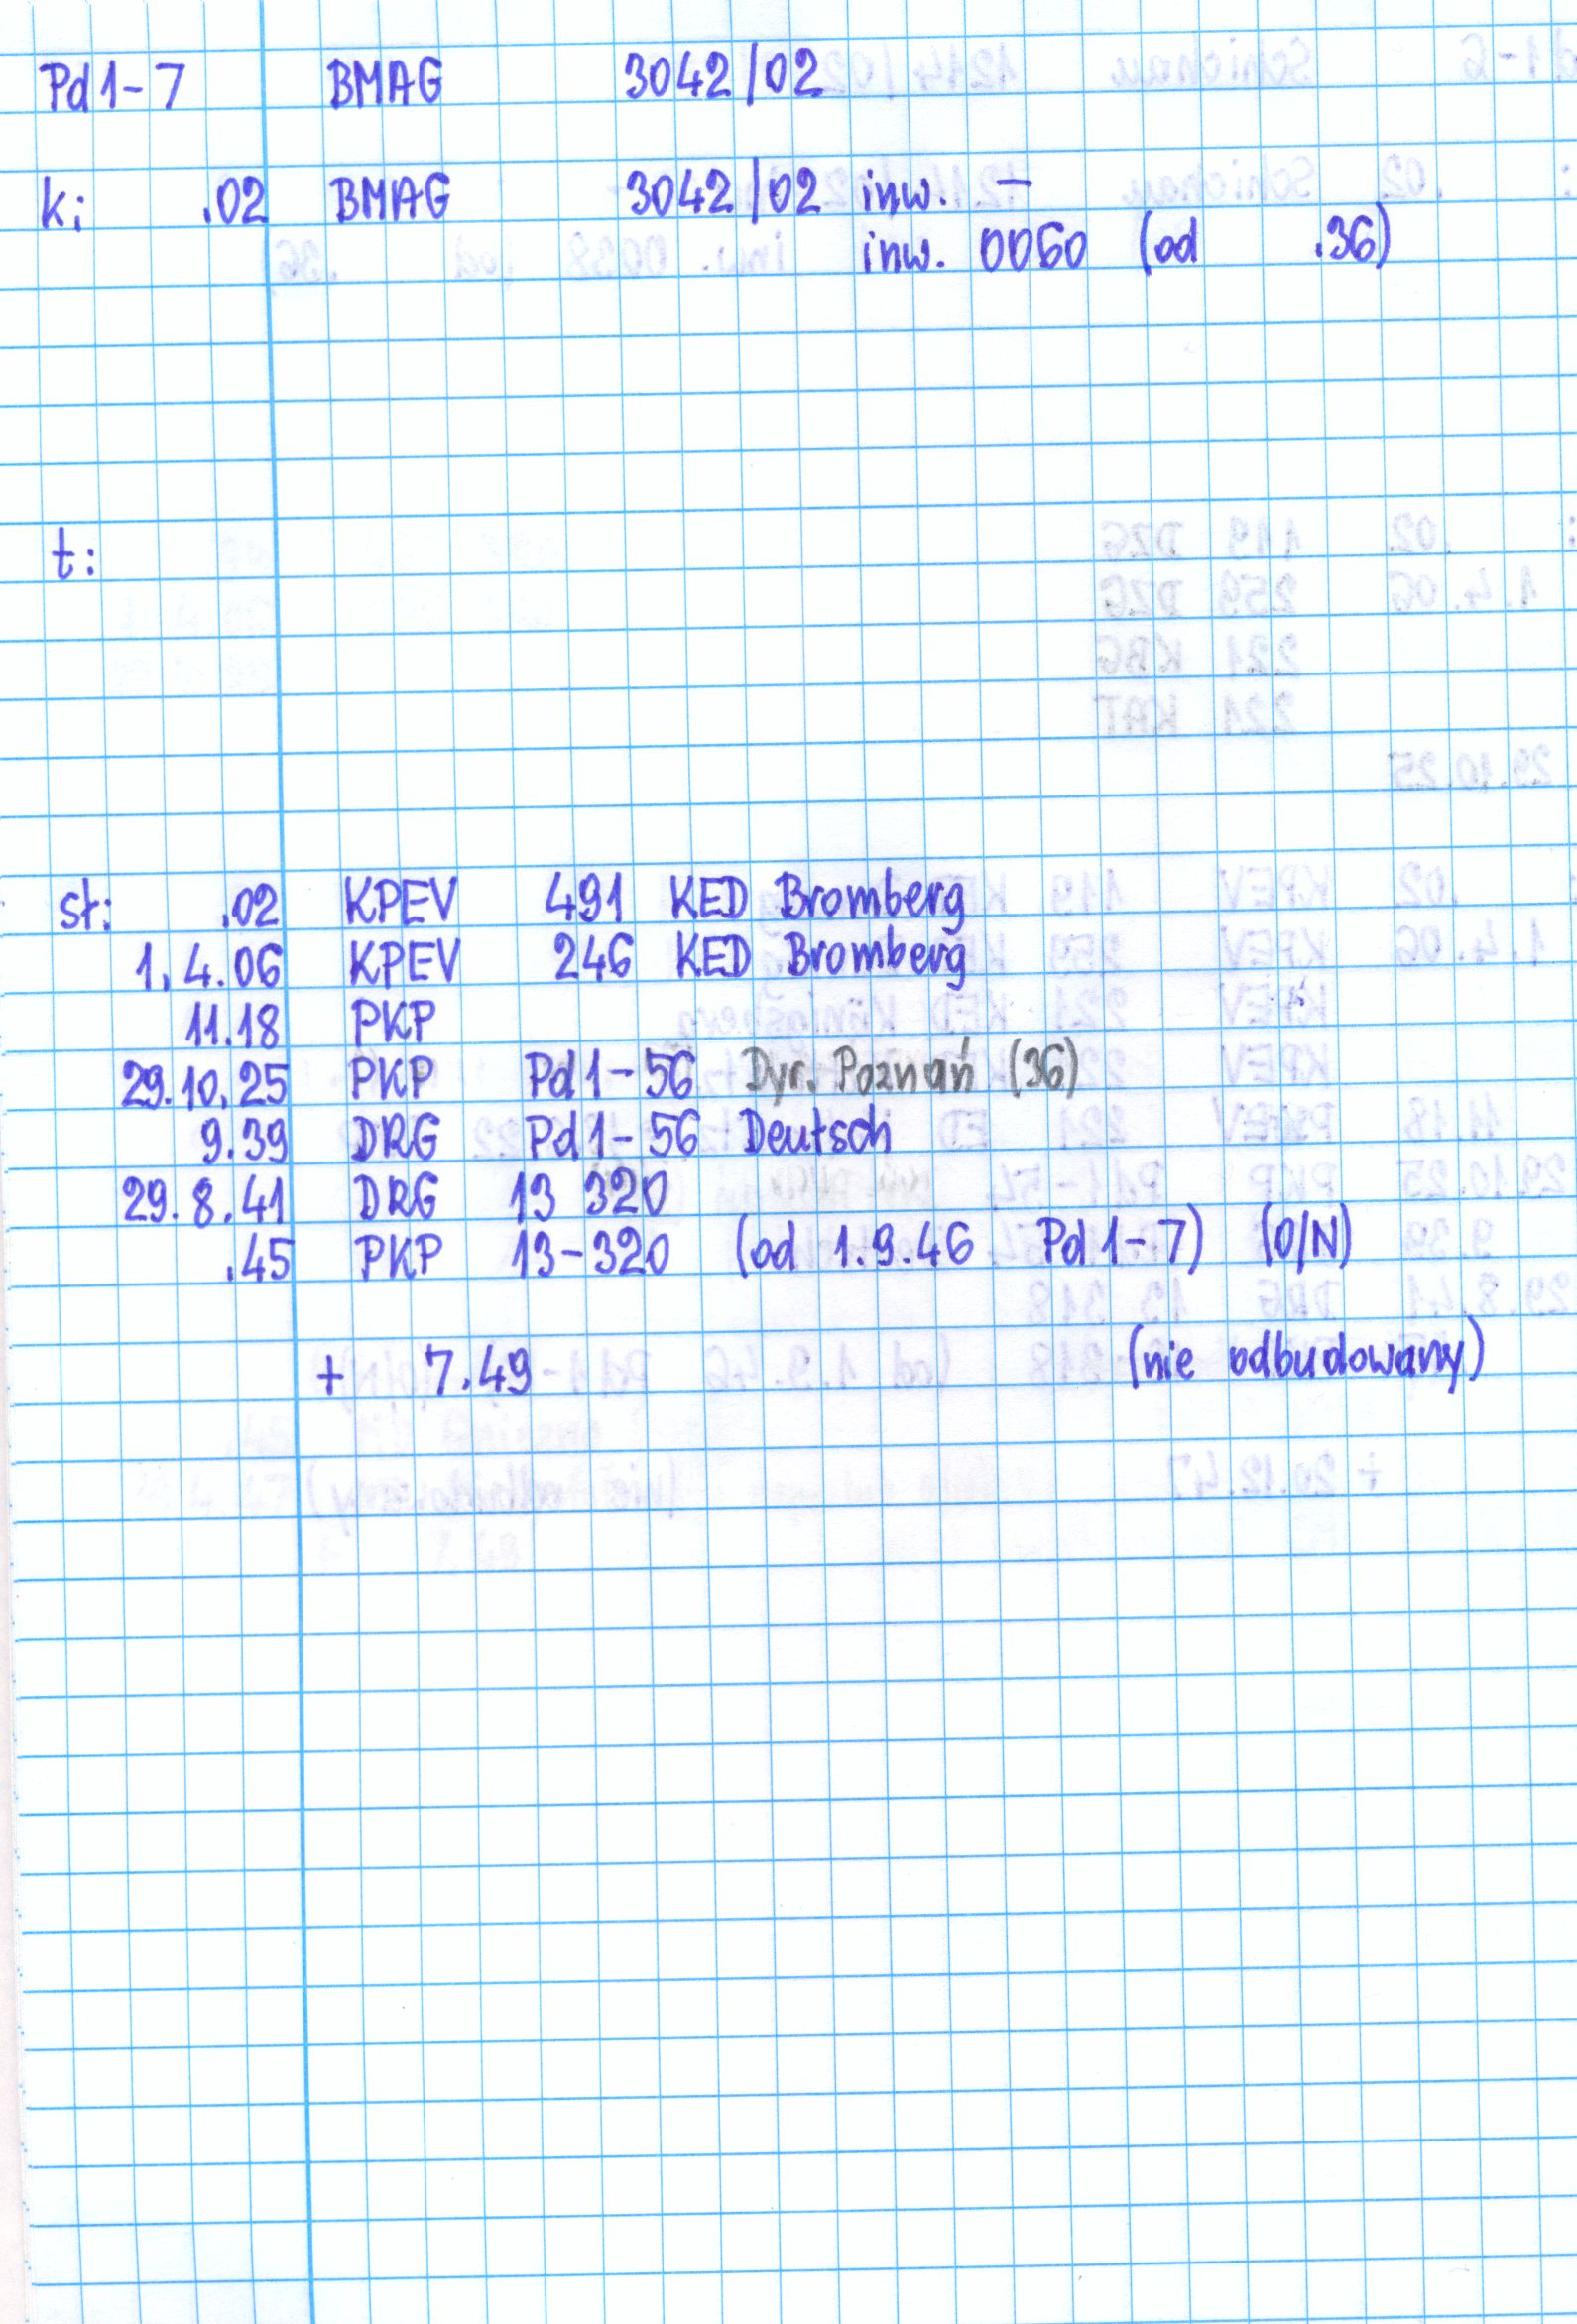 Pd1-7 BMAG 3042/02
k: .02 BMAG 3042/02 inw. —
inw. 0060 (od .36)
t:
sł: .02 KPEV 491 KED Bromberg
1.4.06 KPEV 246 KED Bromberg
11.18 PKP
29.10.25 PKP Pd1-56 Dyr. Poznań (36)
9.39 DRG Pd1-56 Deutsch
29.8.41 DRG 13 320
.45 PKP 13-320 (od 1.9.46 Pd1-7) (O/N)
+ 7.49 (nie odbudowany)